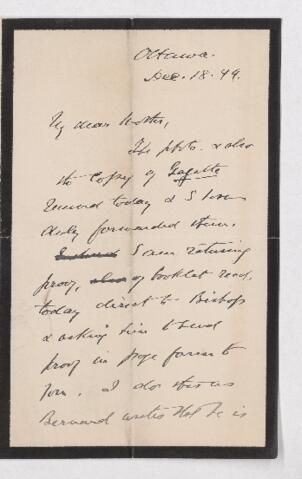 Ottawa.
Dec. 18. 99.
My dear Mother,
The photo. & also
the copy of Gazette
received today & I have
duly forwarded them.
I am returning
proof, of booklet recd.
today direct to Bishop
& asking him to send
proof in page form to
you. I do this as
Bernard writes that he is